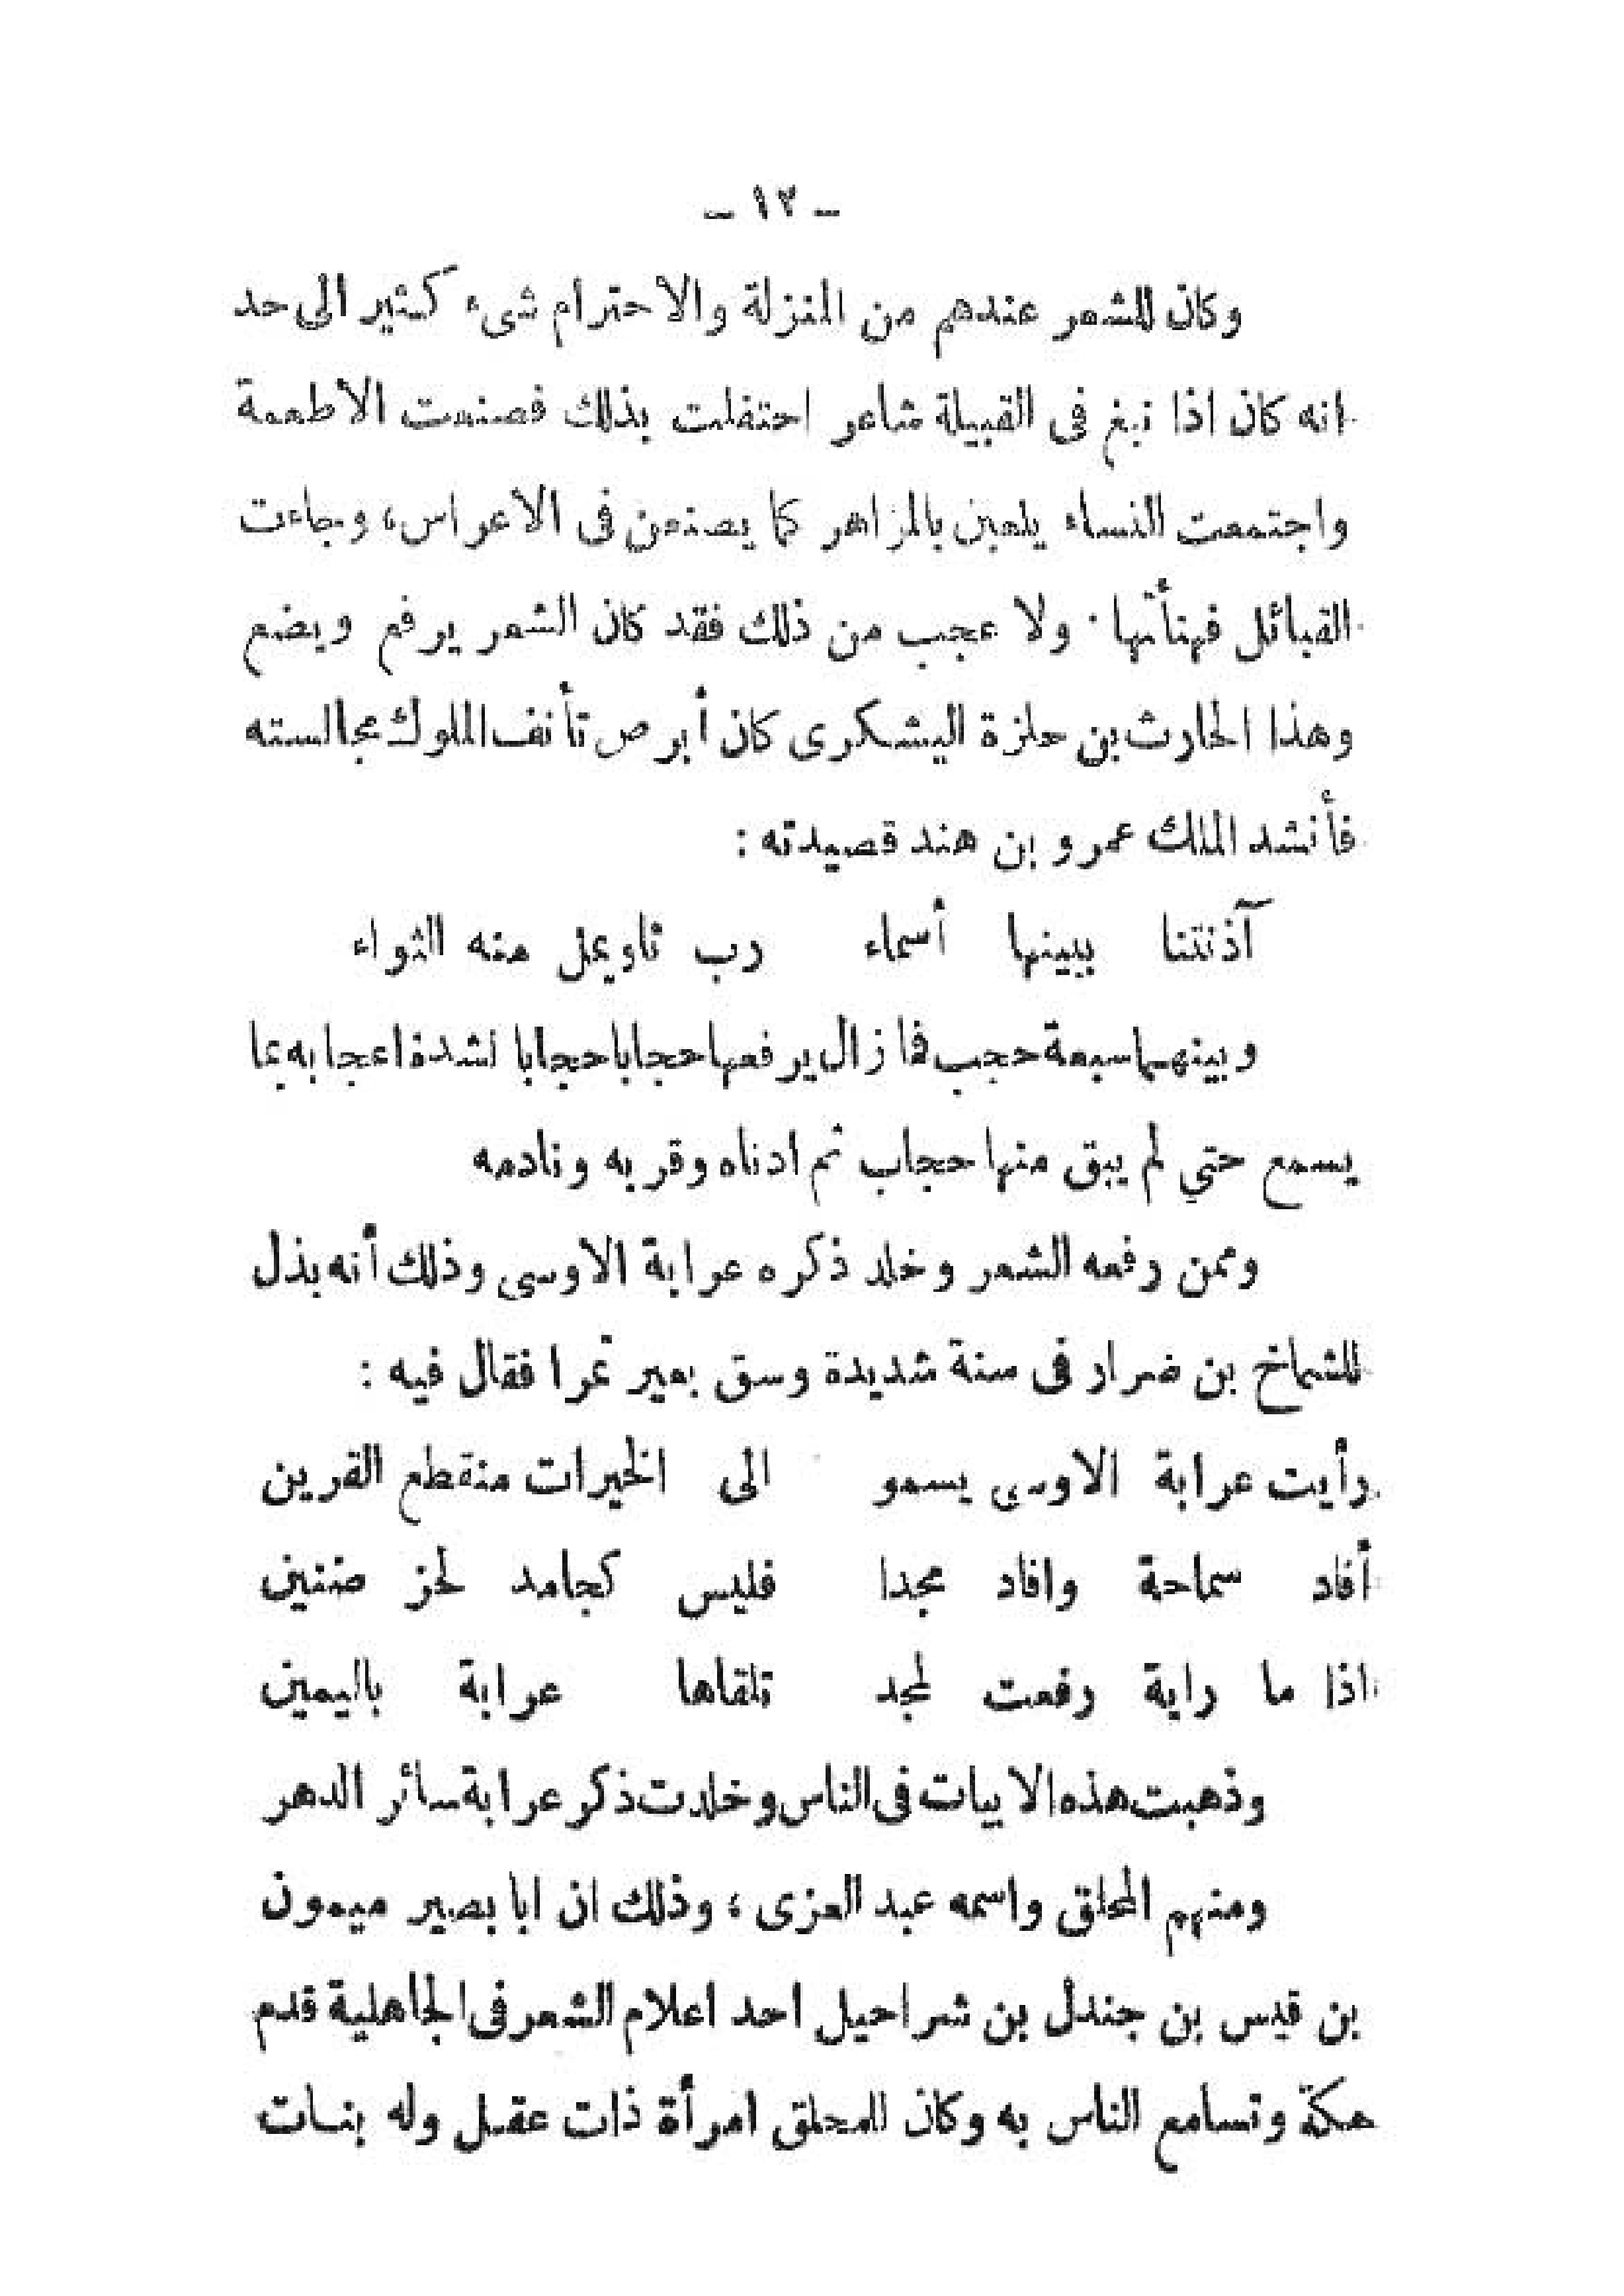 ـ ١٢ ـ
وكان للشعر عندهم من المنزلة والاحترام شىء كثير الى حد
انه كان اذا نبغ فى القبيلة شاعر احتفلت بذلك فصنعت الأطعمة
واجتمعت النساء يلعبن بالمزاهر كما يصنعن فى الأعراس، وجاءت
القبائل فهنأتها ٠ ولا عجب من ذلك فقد كان الشعر يرفع ويضع
وهذا الحارث بن حلزة اليشكرى كان أبرص تأنف الملوك مجالسته
فأنشد الملك عمرو بن هند قصيدته :
آذنتنا ببينها أسماء رب ثاو يمل منه الثواء
وبينهما سبعة حجب فما زال يرفعها حجابا حجابا لشدة اعجابه بما
يسمع حتي لم يبق منها حجاب ثم ادناه وقربه ونادمه
وممن رفعه الشعر وخلد ذكره عرابة الاوسى وذلك أنه بذل
للشماخ بن ضرار فى سنة شديدة وسق بعير تمرا فقال فيه :
رأيت عرابة الاوسي يسمو الى الخيرات منقطع القرين
أفاد سماحة وافاد مجدا فليس كجامد لحز ضنين
اذا ما راية رفعت لمجد تلقاها عرابة باليمين
وذهبت هذه الابيات فى الناس وخلدت ذكر عرابة سائر الدهر
ومنهم المحلق واسمه عبد العزى ؛ وذلك ان ابا بصير ميمون
بن قيس بن جندل بن شراحيل احد اعلام الشعر فى الجاهلية قدم
مكة وتسامع الناس به وكان للمحلق امرأة ذات عقل وله بنات